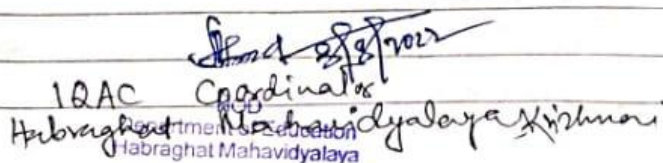 8/8/2022
IQAC Coordinator
HOD
Habraghat Mahavidyalaya Krishnai
Department of Education
Habraghat Mahavidyalaya